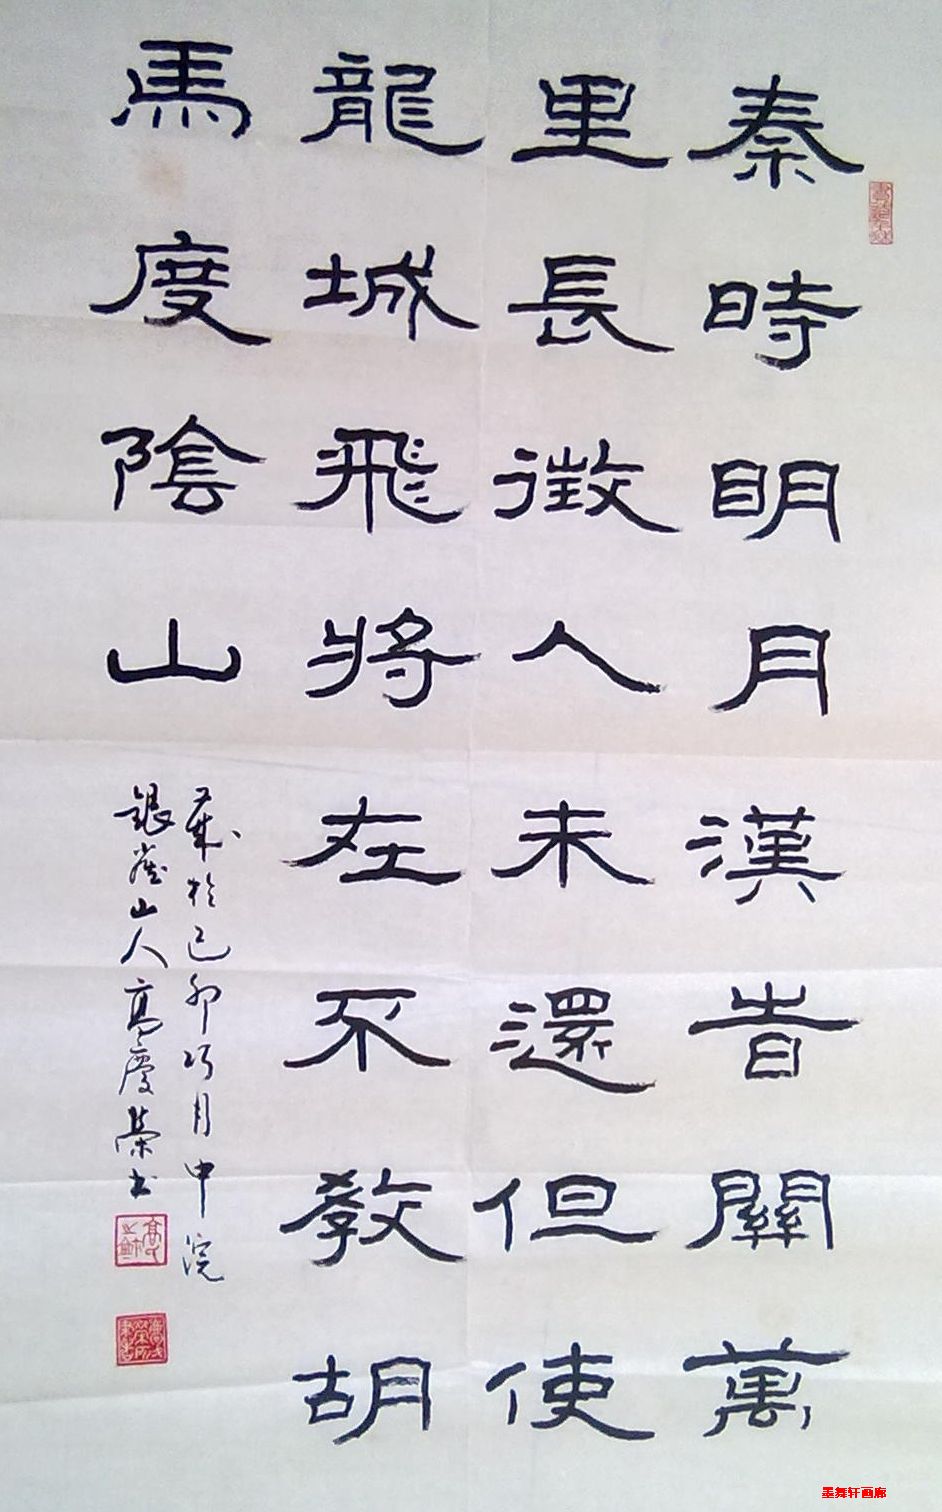 秦時明月漢旹關萬
里長徵人未還但使
龍城飛將左不教胡
馬度陰山
歲於己卯巧月中浣
銀雀山人高慶榮书
墨舞轩画廊